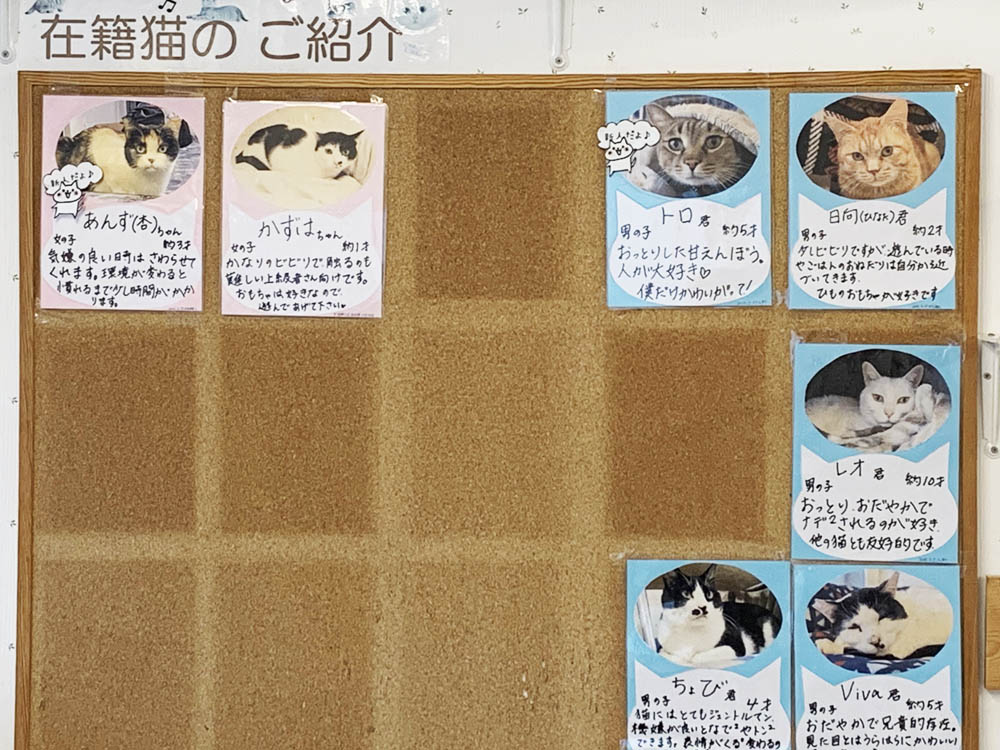 在籍猫の ご紹介
新人だよ♪
あんず(杏)ちゃん
女の子 約3才
気嫌の良い日時は さわらせて
くれます。環境が変わると
慣れるまで少し時間がかか
ります。
かずはちゃん
女の子 約1才
かなりのビビリで触るのも
難しい上級者さん向けです。
おもちゃは好きなので
遊んであげて下さい
新人だよ♪
トロ君
男の子 約5才
おっとりした甘えんぼう。
人が大好き♡
僕だけかわいがって!
日向(ひなた)君
男の子 約2才
少しビビリですが 遊んでいる時
やごはんのおねだりは自分から近
づいてきます。
ひものおもちゃが好きです
レオ君
男の子 約10才
おっとり おだやかで
ナデ2されるのが好き
他の猫とも友好的です。
ちょび君
男の子 4才
猫にはとてもジェントルマン
機嫌が良いとなで2やトン2
できます。表情がくる2変わるの
Viva君
男の子 約5才
おだやかで兄貴的存在。
見た目とはうらはらにかわいい